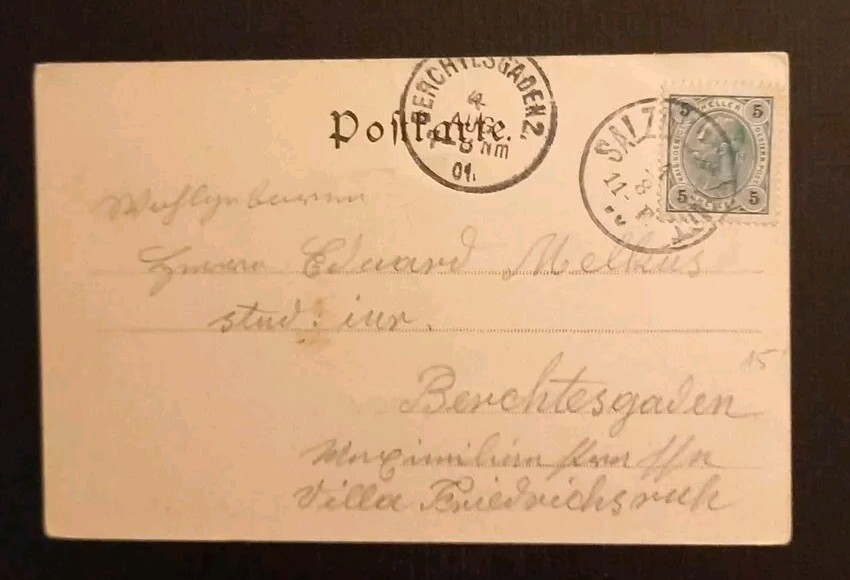 BERCHTESGADEN 2.
4
AUG
8 Nm
01.
Postkarte.
SALZ
11.
5 HELLER 5
5 5
Wohlgeboren
Herrn Eduard
stud: iur.
15
Berchtesgaden
Maximilianstrasse
Villa Friedrichsruh